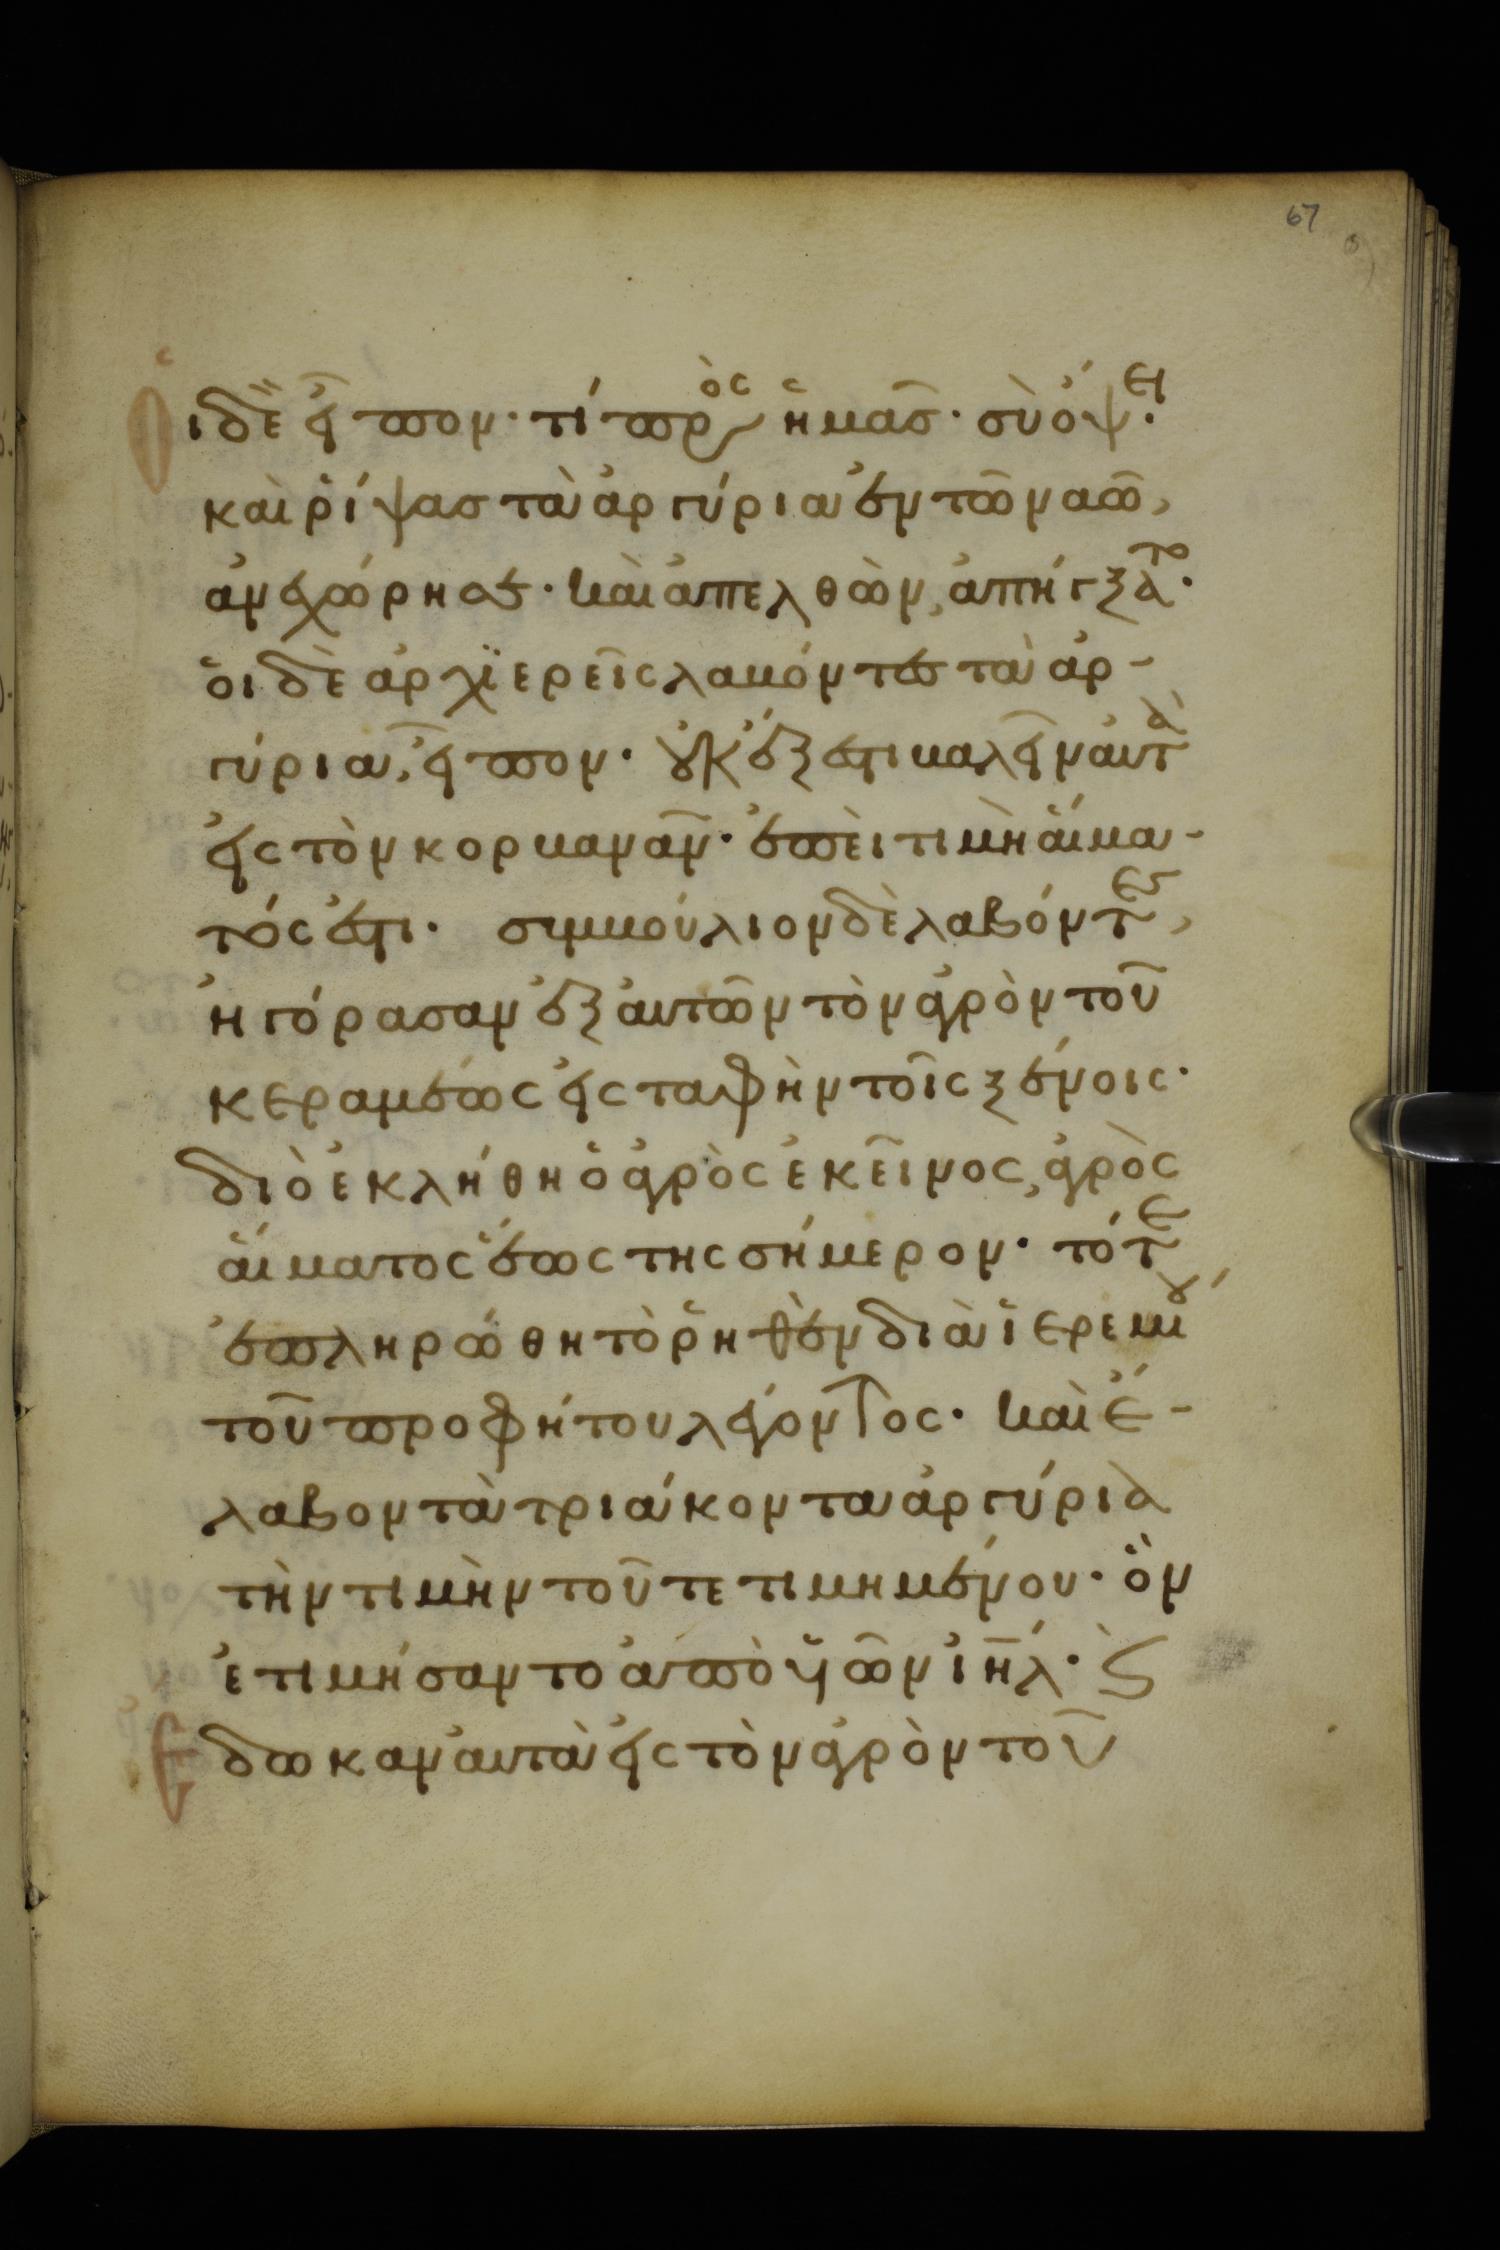 67
Ὁι δὲ εἶπον· τί πρὸς ἡμᾶσ· σὺ ὄψει·
καὶ ῥίψασ τὰ ἀργύρια ἐν τῶ ναῶ,
ἀνεχώρησε· καὶ ἀπελθὼν, ἀπήγξατο·
ὁι δὲ ἀρχϊερεῖς λαβόντες τὰ ἀρ-
γύρια, εἶπον· οὐκ ἔξεστι βαλεῖν ἀυτὰ
εἰς τὸν κορβανᾶν· ἐπεὶ τιμὴ ἅιμα-
τός ἐστι· συμβούλιον δὲ λαβόντες,
ἠγόρασαν ἐξ ἀυτῶν τὸν ἀγρὸν τοῦ
κεραμέως εἰς ταφὴν τοῖς ξένοις·
διὸ ἐκλήθη ὁ ἀγρὸς ἐκεῖνος, ἀγρὸς
ἅιματος ἕως της σήμερον· τότε
ἐπληρώθη τὸ ῥηθὲν διὰ ἱερεμίου
τοῦ προφήτου λέγοντος· καὶ ἔ-
λαβον τὰ τριάκοντα ἀργύρια
τὴν τιμὴν τοῦ τετιμημένου· ὃν
ἐτιμήσαντο ἀπὸ υἱῶν ἰηλ· καὶ
Ἔδωκαν ἀυτὰ εἰς τὸν ἀγρὸν τοῦ